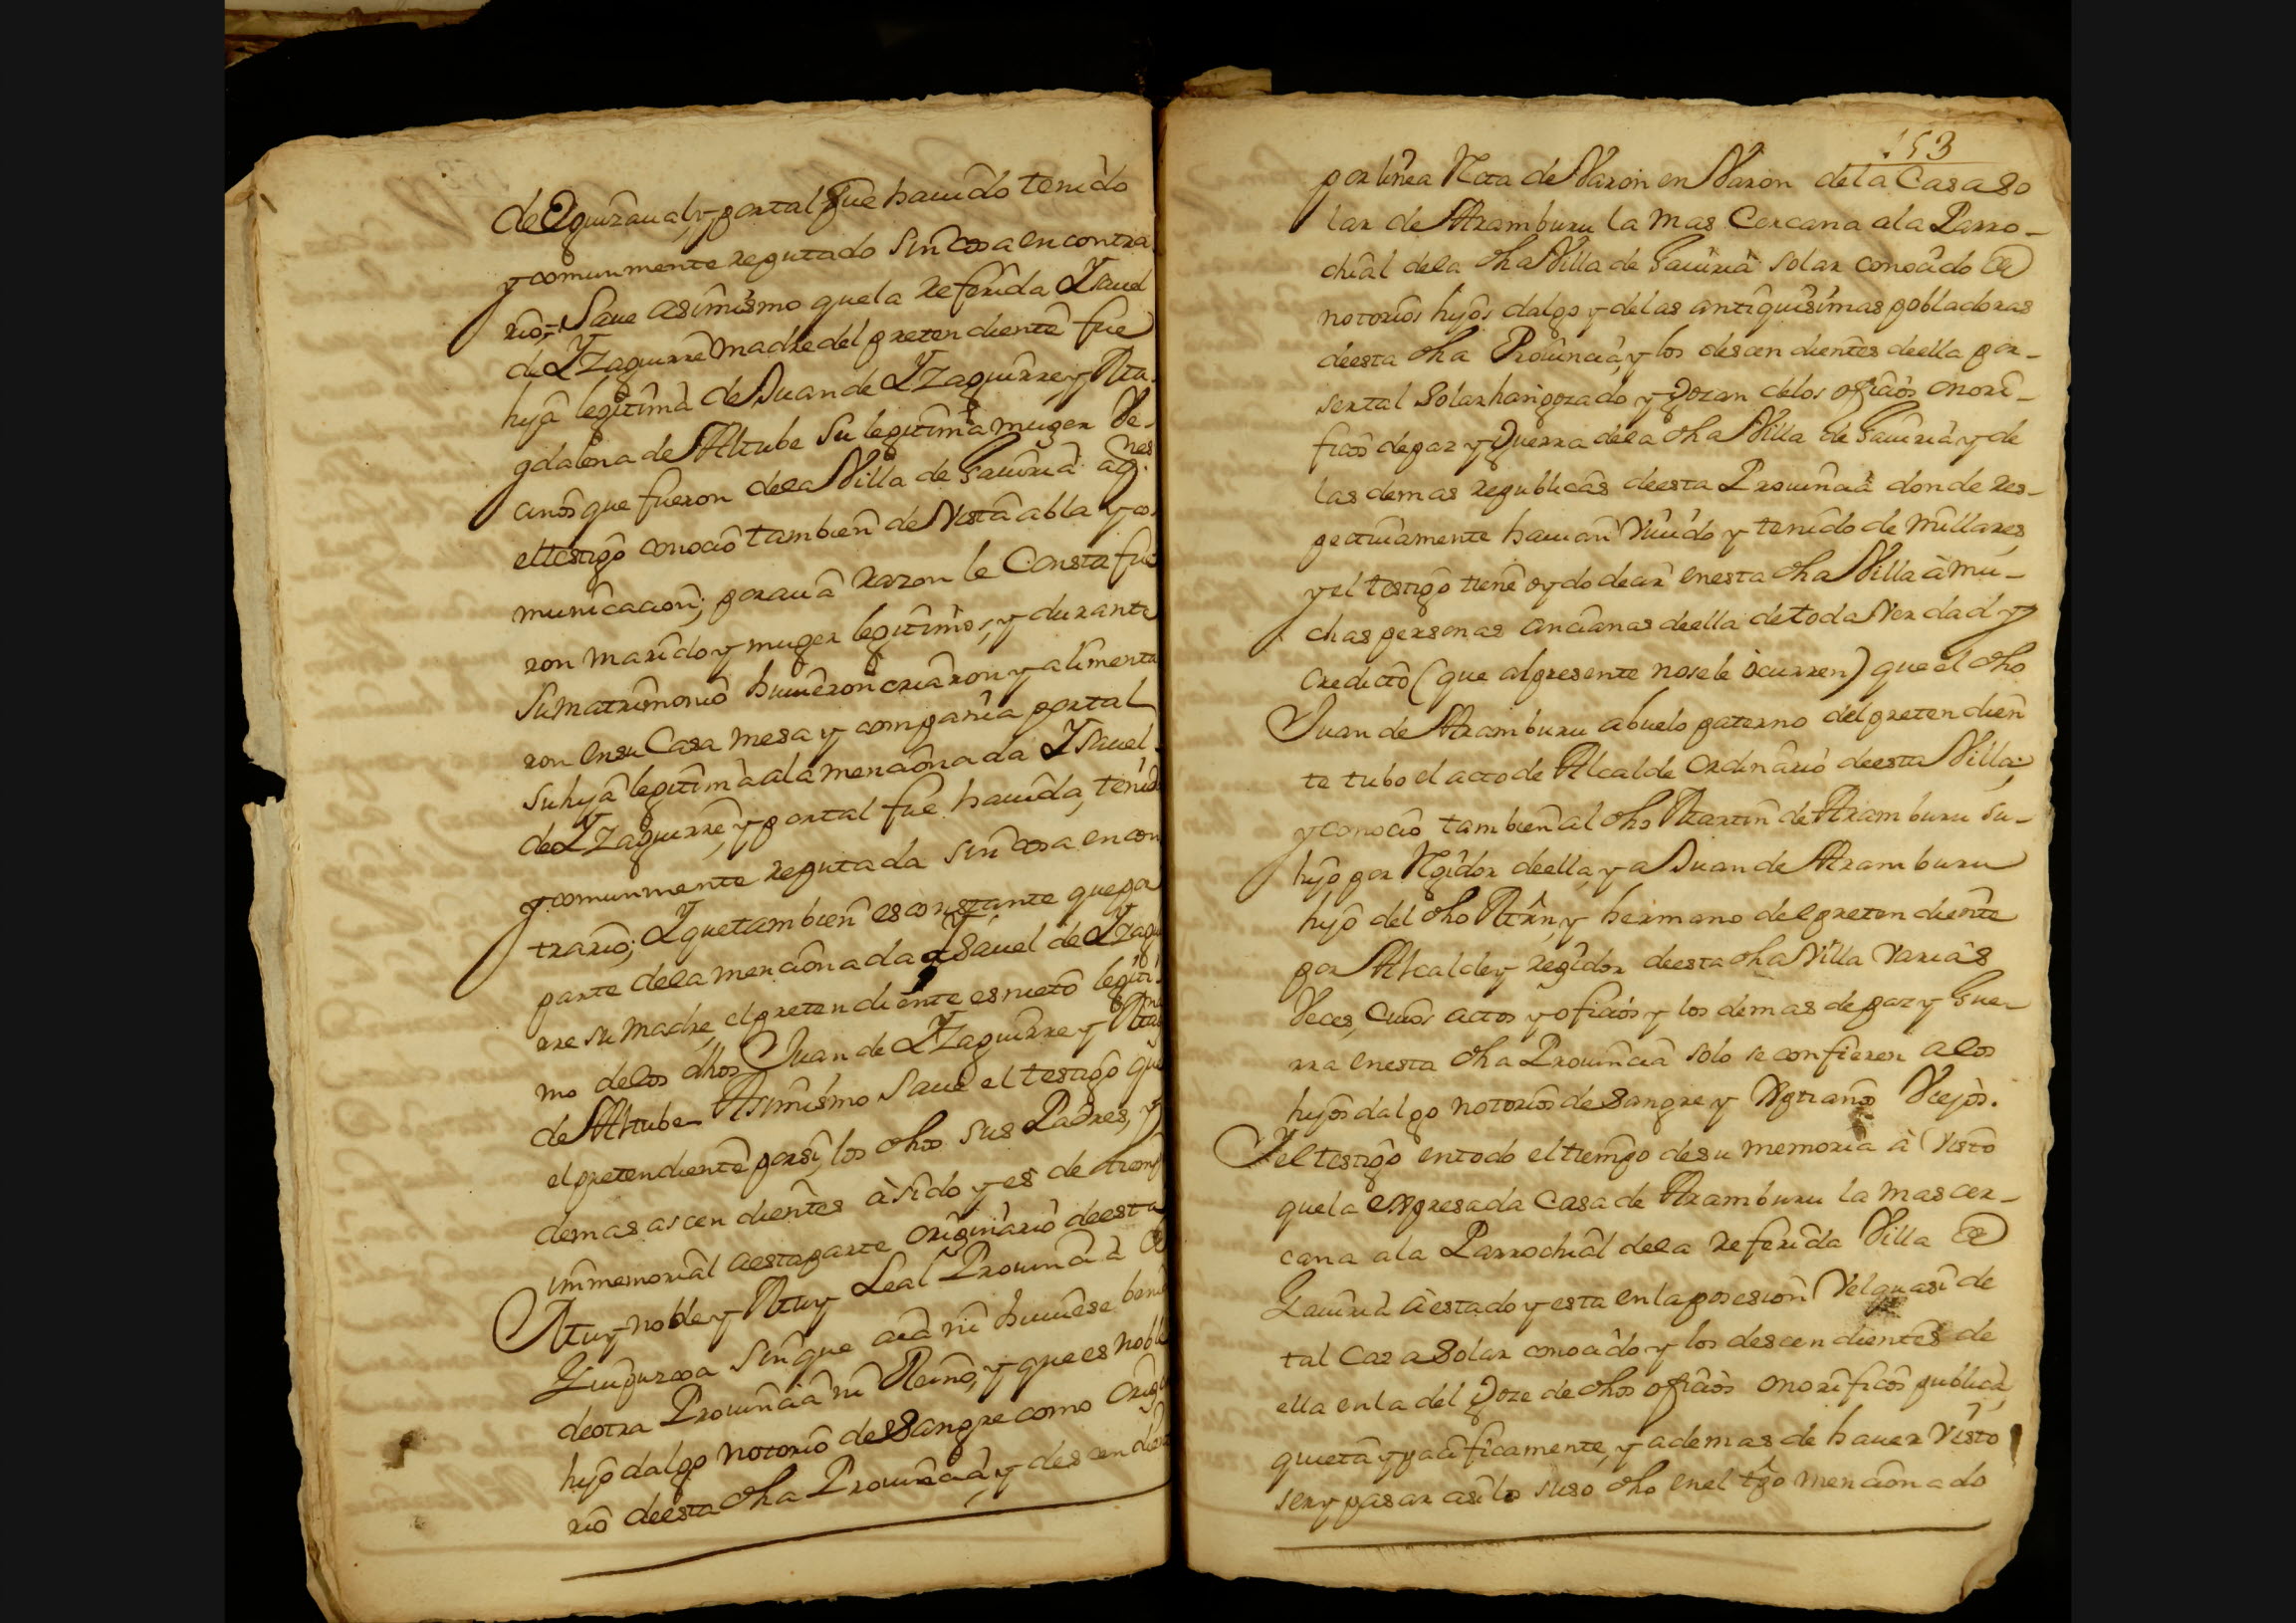 de Eguizaual, y por tal fue hauido tenido
y comunmente reputado sin cosa en contra
rio,= Saue asimismo que la referida Ysauel
de Yzaguirre madre del pretendiente fue
hija legitima de Juan de Yzaguirre y Ma
gdalena de Altube su legitima muger Ve-
cinos que fueron dela Villa de Gauiria aq.nes
el testigo conocio tambien de Vista abla y co
municacion; por cuia razon le Consta fue
ron marido y muger legitimos, y durante
su matrimonio huuieron criaron y alimenta
ron en su Casa mesa y compania por tal
su hija legitima ala mencionada Ysauel
de Yzaguirre, y por tal fue hauida, tenida
y comunmente reputada sin cosa en con
trario; Y que tambien es constante que por
parte dela mencionada Ysauel de Yzagui
rre su Madre, el pretendiente es nieto legiti
mo delos dhos Juan de Yzaguirre y Mag.na
de Altube Asimismo Saue el testigo que
el pretendiente por si, los dhos sus Padres, y
demas ascendientes à sido y es de tiempo
immemorial aesta parte originario deesta
Muy noble y Muy Leal Prouincia de
Guipuzcoa sin que aia ni huuiese benido
de otra Prouincia ni Reino, y que es noble
hijo dalgo notorio de Sangre como Origina
rio deesta dha Prouincia, y descendiente
153
por linea Recta de Varon en Varon dela Casa so
lar de Aramburu la mas Cercana ala Parro-
chial dela dha Villa de Gauiria solar conocido de
notorios hijos dalgo y delas antiquisimas pobladoras
deesta dha Prouincia, y los descendientes deella por
ser tal Solar han gozado y Gozan delos oficios onori-
ficos de paz y Guerra dela dha Villa de Gauiria y de
las demas republicas deesta Prouincia donde res-
pectiuamente hauian Viuido y tenido de millares,
y el testigo tiene oydo decir en esta dha Villa à mu-
chas personas ancianas deella de toda Verdad y
Credicto (que al presente no se le ocurren) que el dho
Juan de Aramburu abuelo paterno del pretendien
te tubo el acto de Alcalde Ordinario deesta Villa;
y conocio tambien al dho Martin de Aramburu su-
hijo por Regidor deella, y a Juan de Aramburu
hijo del dho Mrn, y hermano del pretendiente
por Alcalde y Regidor deesta dha Villa Varias
Veces, Cuios actos y oficios y los demas de paz y Gue-
rra en esta dha Prouincia solo se confieren alos
hijos dalgo notorios de Sangre y Xptianos Viejos.
Y el testigo en todo el tiempo de su memoria à Visto
que la expresada Casa de Aramburu la mas cer-
cana ala Parrochial dela referida Villa de
Gauiria à estado y esta en la posesion Vel quasi de
tal Casa Solar conocido y los descendientes de
ella en la del Goze de dhos oficios onorificos publica,
quieta y pacificamente, y ademas de hauer Visto
ser y pasar asi lo suso dho en el tpo mencionado